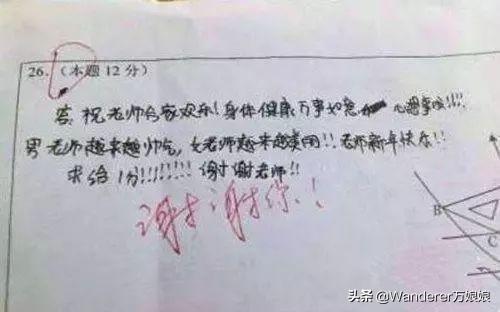 26.（本题12分）
答：祝老师合家欢乐！身体健康 万事如意 心想事成！！！！
男老师越来越帅气，女老师越来越美丽！！老师新年快乐！！
求给1分！！！！！！！！谢谢老师！！
谢谢你！！
B
C
头条 @Wanderer万娘娘